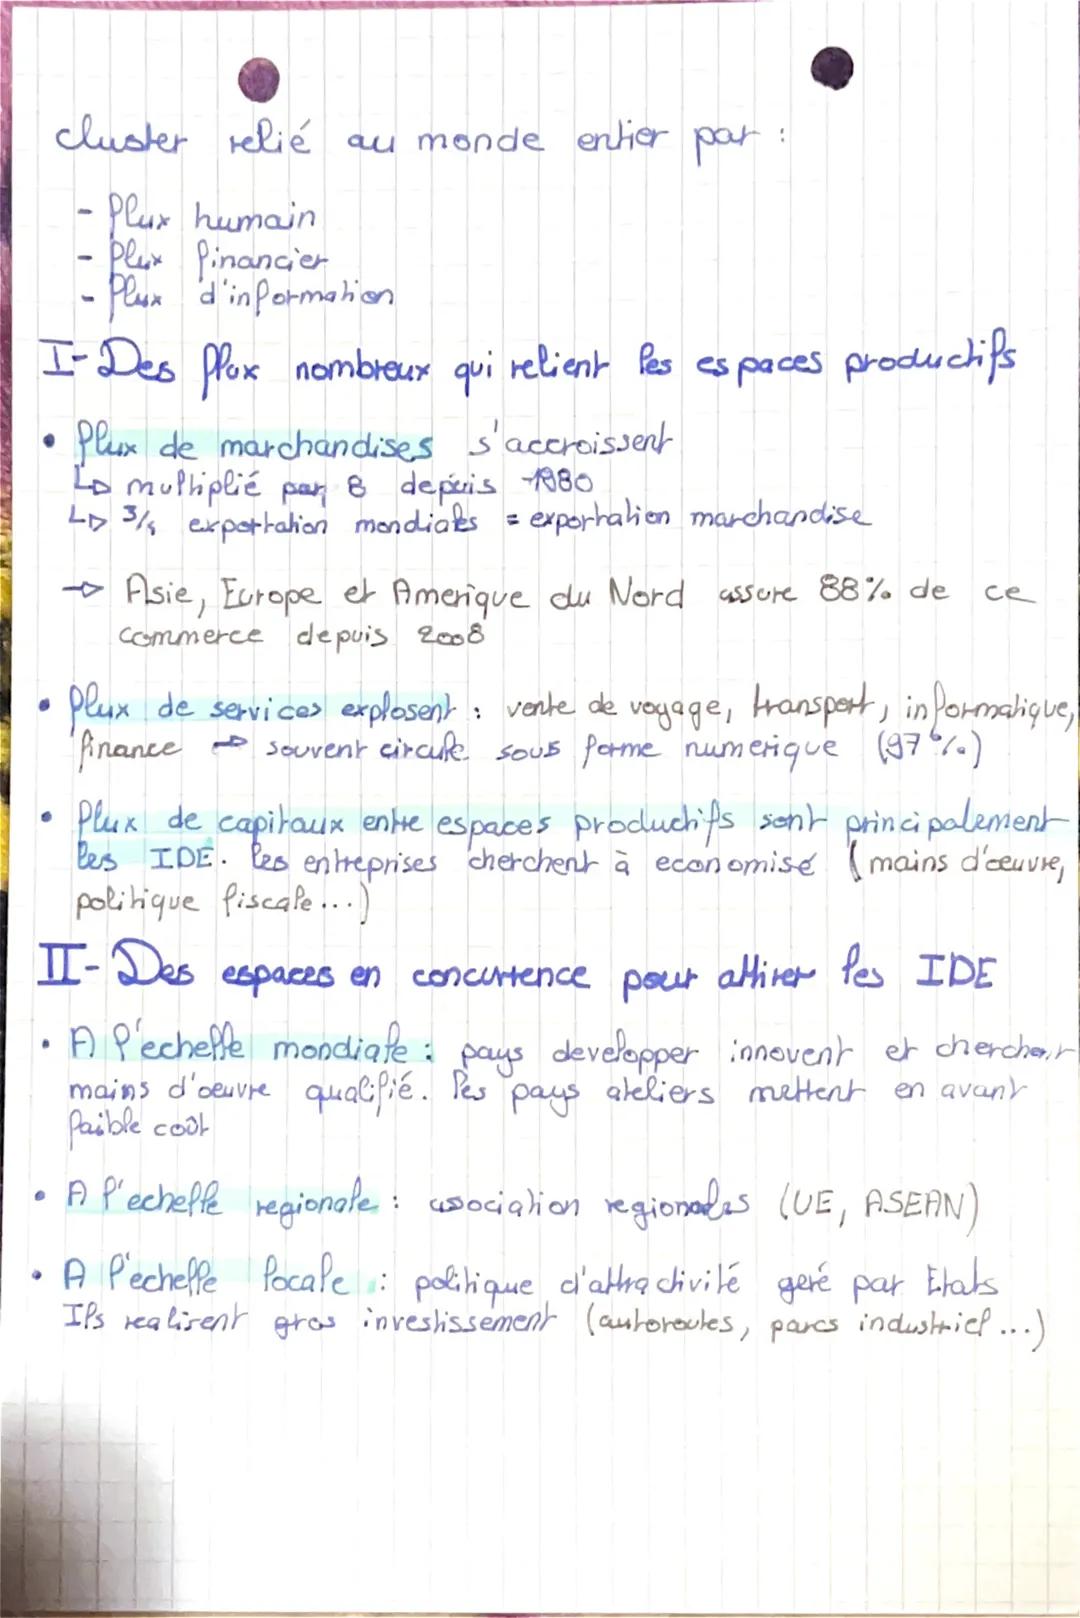 cluster relié au monde entier par :
- flux humain
- flux financier
- flux d'information
I- Des flux nombreux qui relient les espaces productifs
• flux de marchandises s'accroissent
↳ multiplié par 8 depuis 1980
↳ 3/4 exportation mondiales = exportation marchandise
→ Asie, Europe et Amerique du Nord assure 88% de ce
commerce depuis 2008
• flux de services explosent : vente de voyage, transport, informatique,
finance → souvent circule sous forme numerique (97%)
• flux de capitaux entre espaces productifs sont principalement
les IDE. les entreprises cherchent à economisé (mains d'œuvre,
politique fiscale...)
II- Des espaces en concurrence pour attirer les IDE
• A l'echelle mondiale : pays developper innovent et cherchent
mains d'oeuvre qualifié. les pays ateliers mettent en avant
faible coût
• A l'echelle regionale : association regionales (UE, ASEAN)
• A l'echelle locale : politique d'attractivité geré par Etats
Ils realisent gros investissement (autoroutes, parcs industriel...)